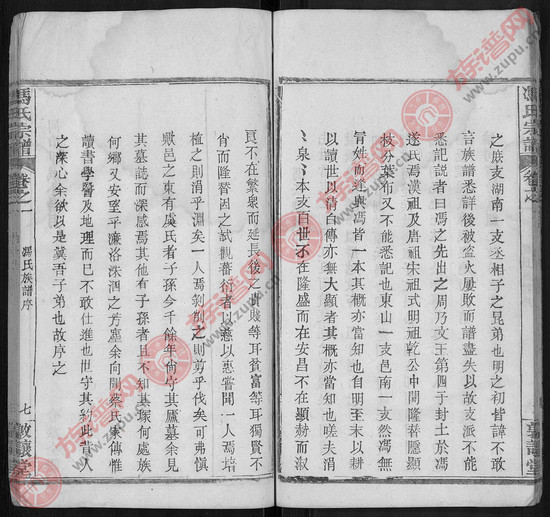 馮氏宗譜
卷之一
之庶支湖南一支丞相子之兄弟也明之初皆諱不敢
言族譜悉詳後被盆火屢敗而譜盡失以故支派不能
悉記説者曰馮之先出之周乃文王第四子封土於馮
遂氏焉漢祖及唐祖宋祖式明祖乾公中間隆替隱顯
枝分葉布又不能悉記也東山一支邑南一支然馮無
冐姓而延與馮皆一本其概亦當知也自明至末以耕
以讀世以清白傳亦無大顯者其概亦當知也嗟夫涓
涓泉也本支百世不在隆盛而在安昌不在顯赫而
良不在繁衆而延長後之此賤等耳貧富等耳獨賢不
肖而隆替因之試觀蕃衍者以悉以悪嘗聞一人焉培
植之則涓乎淵矣一人焉剝削之則剪乎伐矣可弗愼
歟邑之東有虞氏者子孫今千餘年尙守其廬墓余見
其墓誌而深感焉其他有子孫者且不知墓塚何處族
何鄉又安望乎濂洛洙泗之芳墓余向閱蔡氏家傳惟
讀書學醫及地理而已不敢仕進也世守其約此昔人
之深心余欲以是冀吾子弟也故序之
馮氏宗譜
卷之一
馮氏族譜序
七
敦讓堂
敦讓堂
族谱网
www.zupu.cn